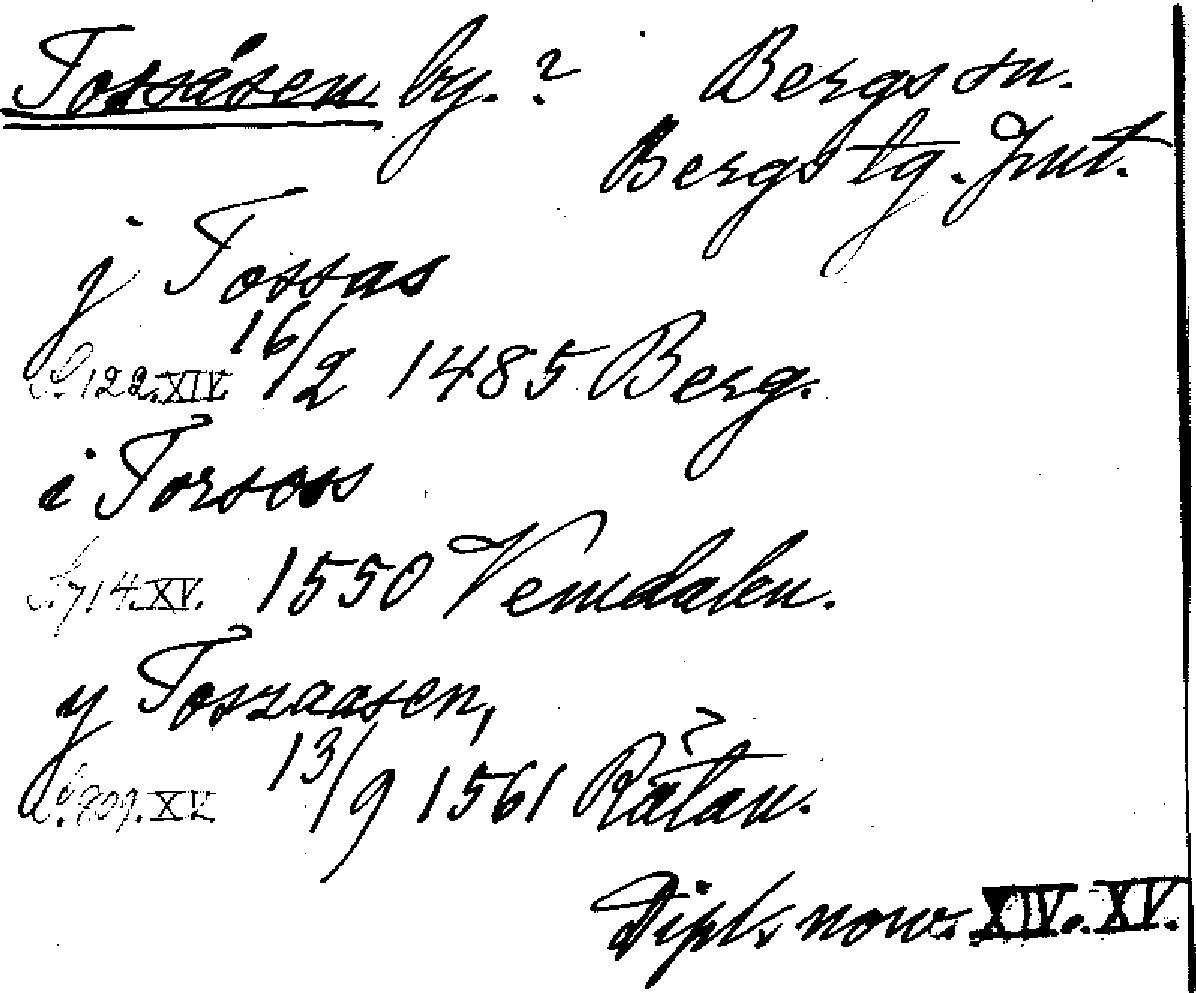 Tossåsen by.? Bergs sn.
Bergs tg. Jmt.
j Tossas
S. 122. XIV. 16/2 1485 Berg.
i Torsoss
S. 714. XV. 1550 Vemdalen.
y Toszaasen,
S. 809. XV. 13/9 1561 Rätan. ?
Dipl. norv. XIV. XV.